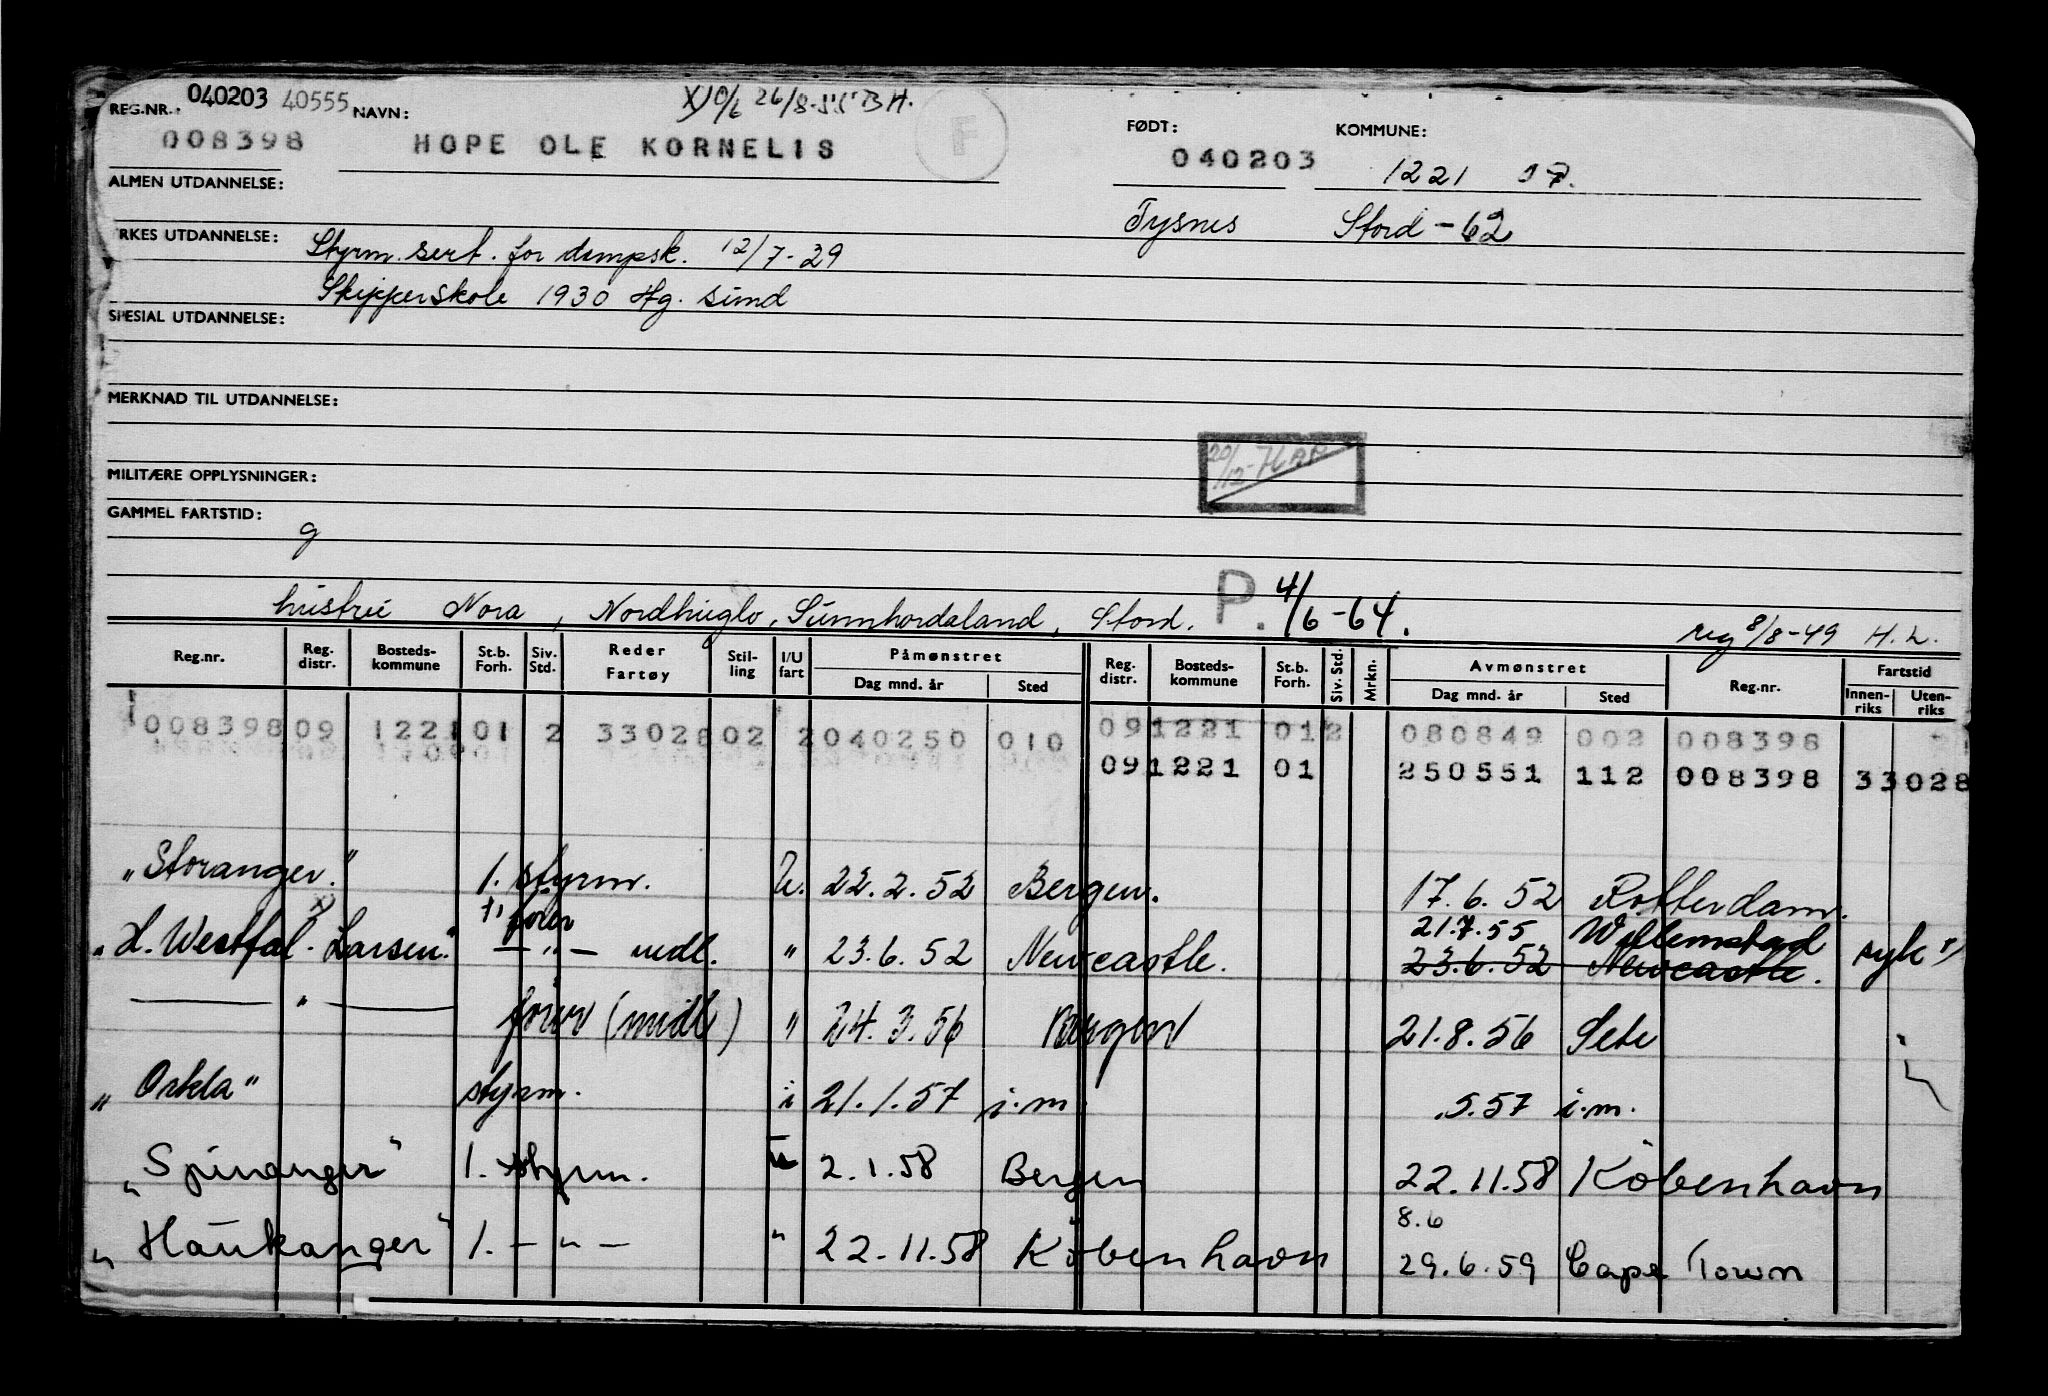 REG.NR. 040203 40555 NAVN: 26/8-55 BH.
008398 HOPE OLE KORNELIS F FØDT: 040203 KOMMUNE: 1221
ALMEN UTDANNELSE:
Tysnes Stord-62
YRKES UTDANNELSE: Styrm. sert. for dampsk. 12/7-29
Skipperskole 1930 Hg. sund
SPESIAL UTDANNELSE:
MERKNAD TIL UTDANNELSE:
20/12-
MILITÆRE OPPLYSNINGER:
GAMMEL FARTSTID:
g
hustru Nora, Nordhuglo, Sunnhordaland, Stord. P. 4/6-64. reg 8/8-49 H.L.
Reg.nr. Reg. distr. Bosteds-kommune St.b. Forh. Siv. Std. Reder Fartøy Stil-ling I/U fart Påmønstret Dag mnd. år Sted Reg. distr. Bosteds-kommune St.b. Forh. Siv. Std. Mrkn. Avmønstret Dag mnd. år Sted Reg.nr. Fartstid Innen-riks Uten-riks
008398 09 1221 01 2 33028 02 2 040250 010 09 1221 01 2 080849 002 008398
09 1221 01 250551 112 008398 33028
"Storanger." 1. styrm. U. 22.2.52 Bergen. 17.6.52 Rotterdam.
"H. Westfal-Larsen" x) 1) fører — " — midl. " 23.6.52 Newcastle. 21.7.55 Willemstad 23.6.52 Newcastle. syk x)
— " — fører (midl) " 24.3.56 Bergen 21.8.56 Sete
"Orkla" styrm. i 21.1.57 i.m. .5.57 i.m.
"Spinanger" 1. styrm. u 2.1.58 Bergen 22.11.58 København
"Haukanger" 1. — " — " 22.11.58 København 8.6 29.6.59 Cape Town